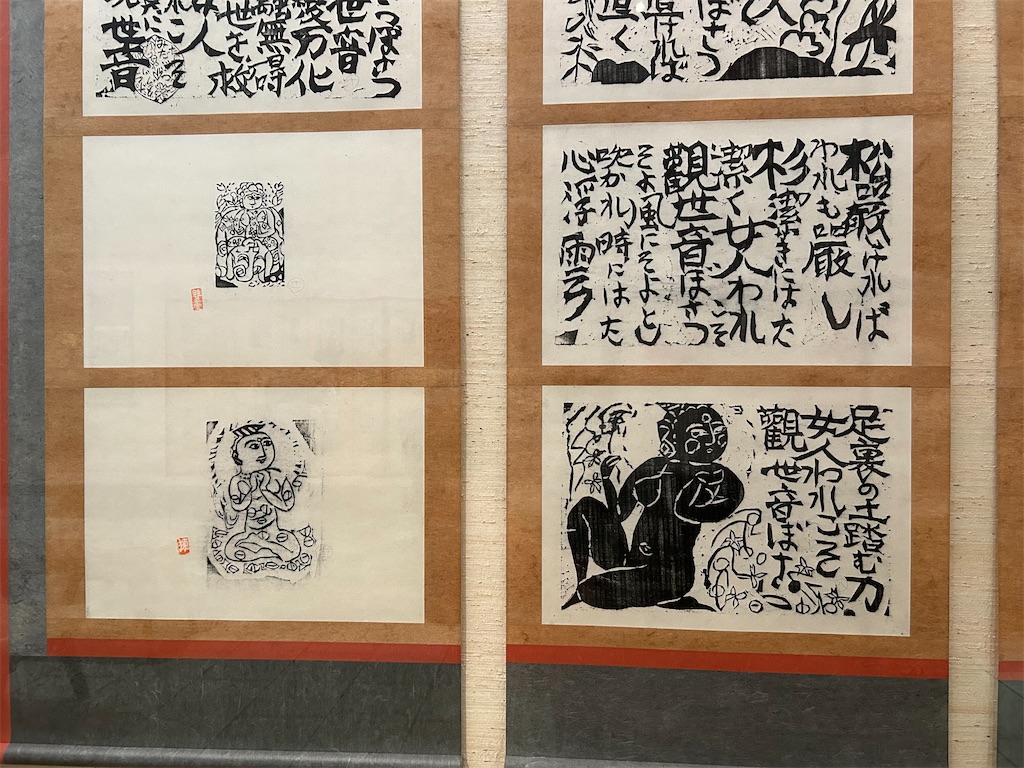 ぼさつ
ければ
直く
松嚴しければ
われも嚴し
杉潔きにはた
潔く女人われ
こそ
觀世音ぼさつ
そよ風にそよと
吹かれ時にはた
足裏の土踏む力
女人われこそ
觀世音ぼさつ
ぼさつ
世音
變万化
融無碍
世を救
人
れこそ
世音